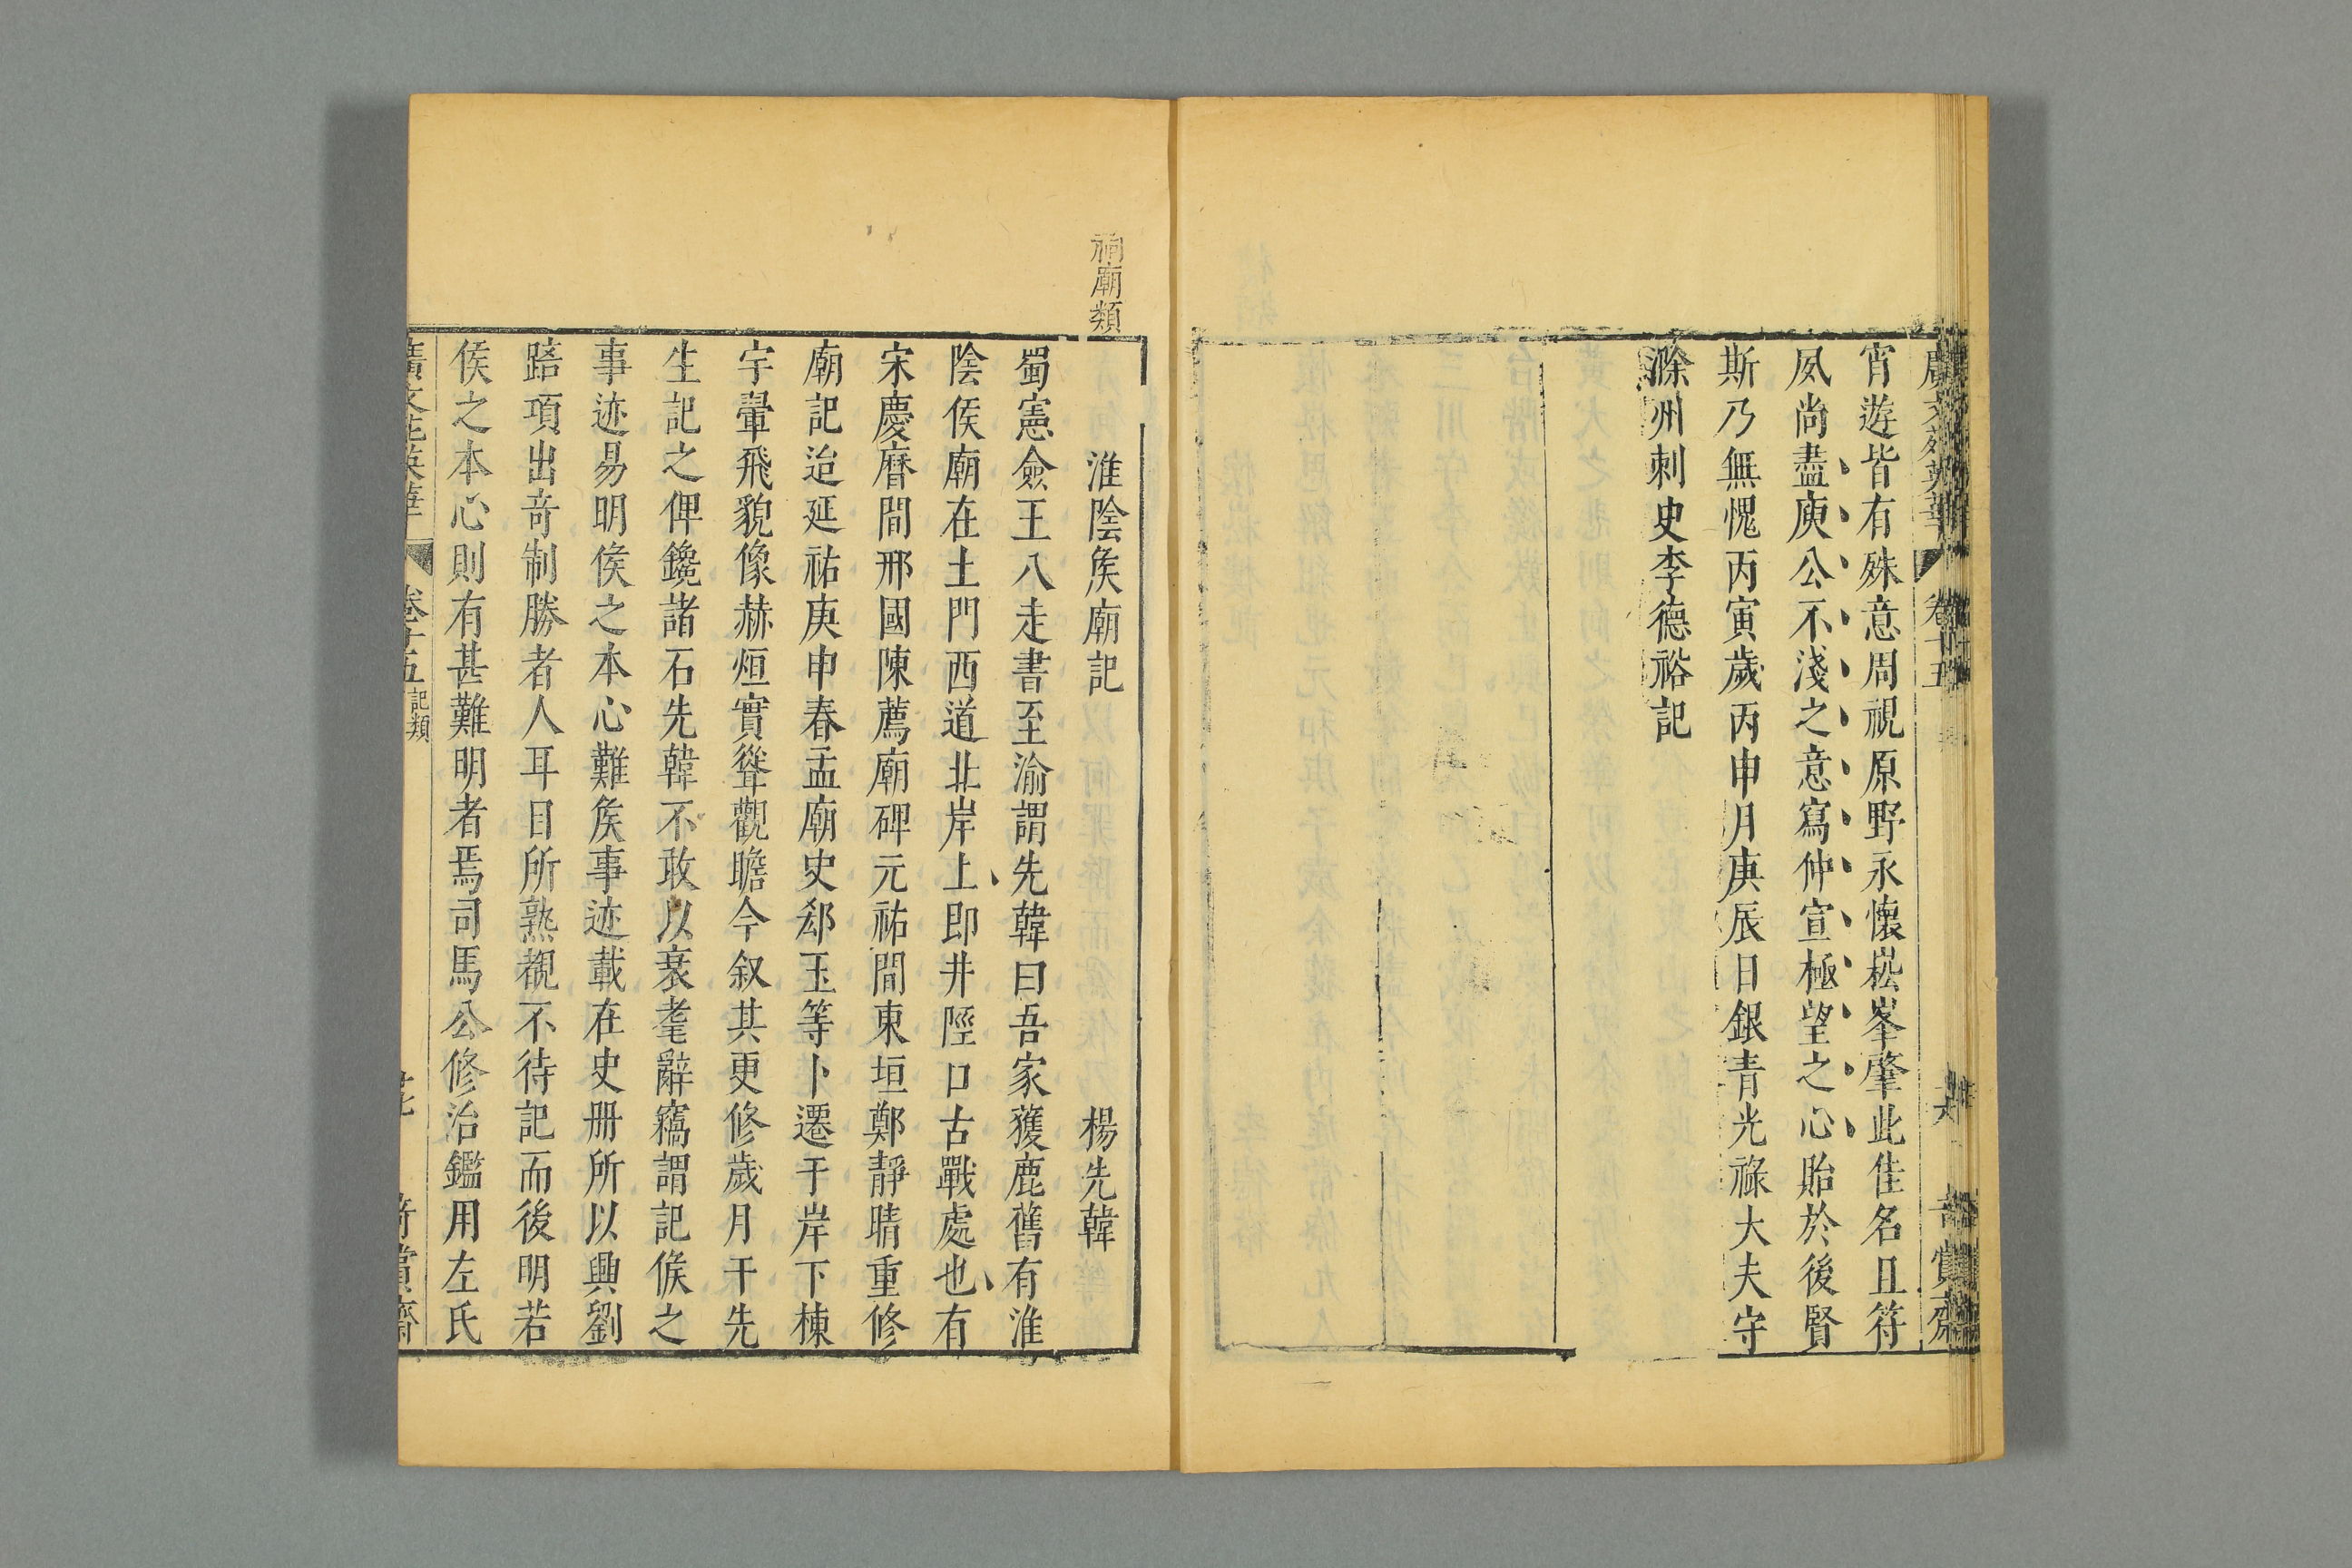 廣文苑英華 卷十五 奇賞齋
宵遊皆有殊意周視原野永懷崧峯肇此佳名且符
夙尚盡庾公不淺之意寫仲宣極望之心貽於後賢
斯乃無愧丙寅歲丙申月庚辰日銀青光祿大夫守
滁州刺史李德裕記
祠廟類
淮陰矦廟記 楊先韓
蜀憲僉王八走書至渝謂先韓曰吾家獲鹿舊有淮
陰侯廟在土門西道北岸上即井陘口古戰處也有
宋慶曆間邢國陳薦廟碑元祐間東垣鄭靜晴重修
廟記迨延祐庚申春孟廟史郄玉等卜遷于岸下棟
宇翬飛貌像赫烜實聳觀瞻今叙其更修歲月干先
生記之俾鑱諸石先韓不敢以衰耄辭竊謂記侯之
事迹易明侯之本心難矦事迹載在史册所以興劉
踣項出奇制勝者人耳目所熟覩不待記而後明若
侯之本心則有甚難明者焉司馬公修治鑑用左氏
廣文苑英華 卷十五 記類 奇賞齋